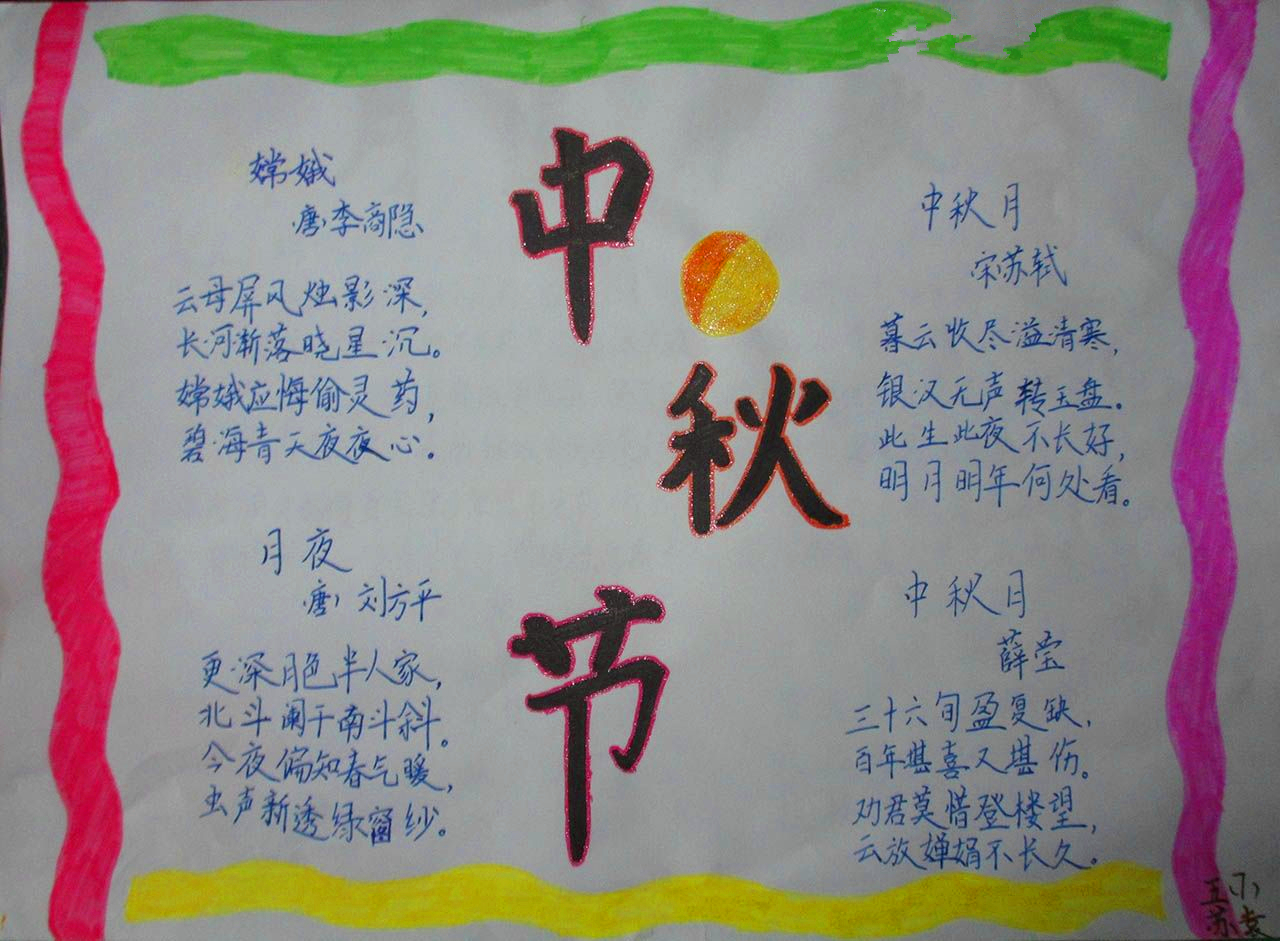 嫦娥
唐 李商隐
云母屏风烛影深，
长河渐落晓星沉。
嫦娥应悔偷灵药，
碧海青天夜夜心。
月夜
唐 刘方平
更深月色半人家，
北斗阑干南斗斜。
今夜偏知春气暖，
虫声新透绿窗纱。
中
秋
节
中秋月
宋苏轼
暮云收尽溢清寒，
银汉无声转玉盘。
此生此夜不长好，
明月明年何处看。
中秋月
薛莹
三十六旬盈复缺，
百年堪喜又堪伤。
劝君莫惜登楼望，
云放婵娟不长久。